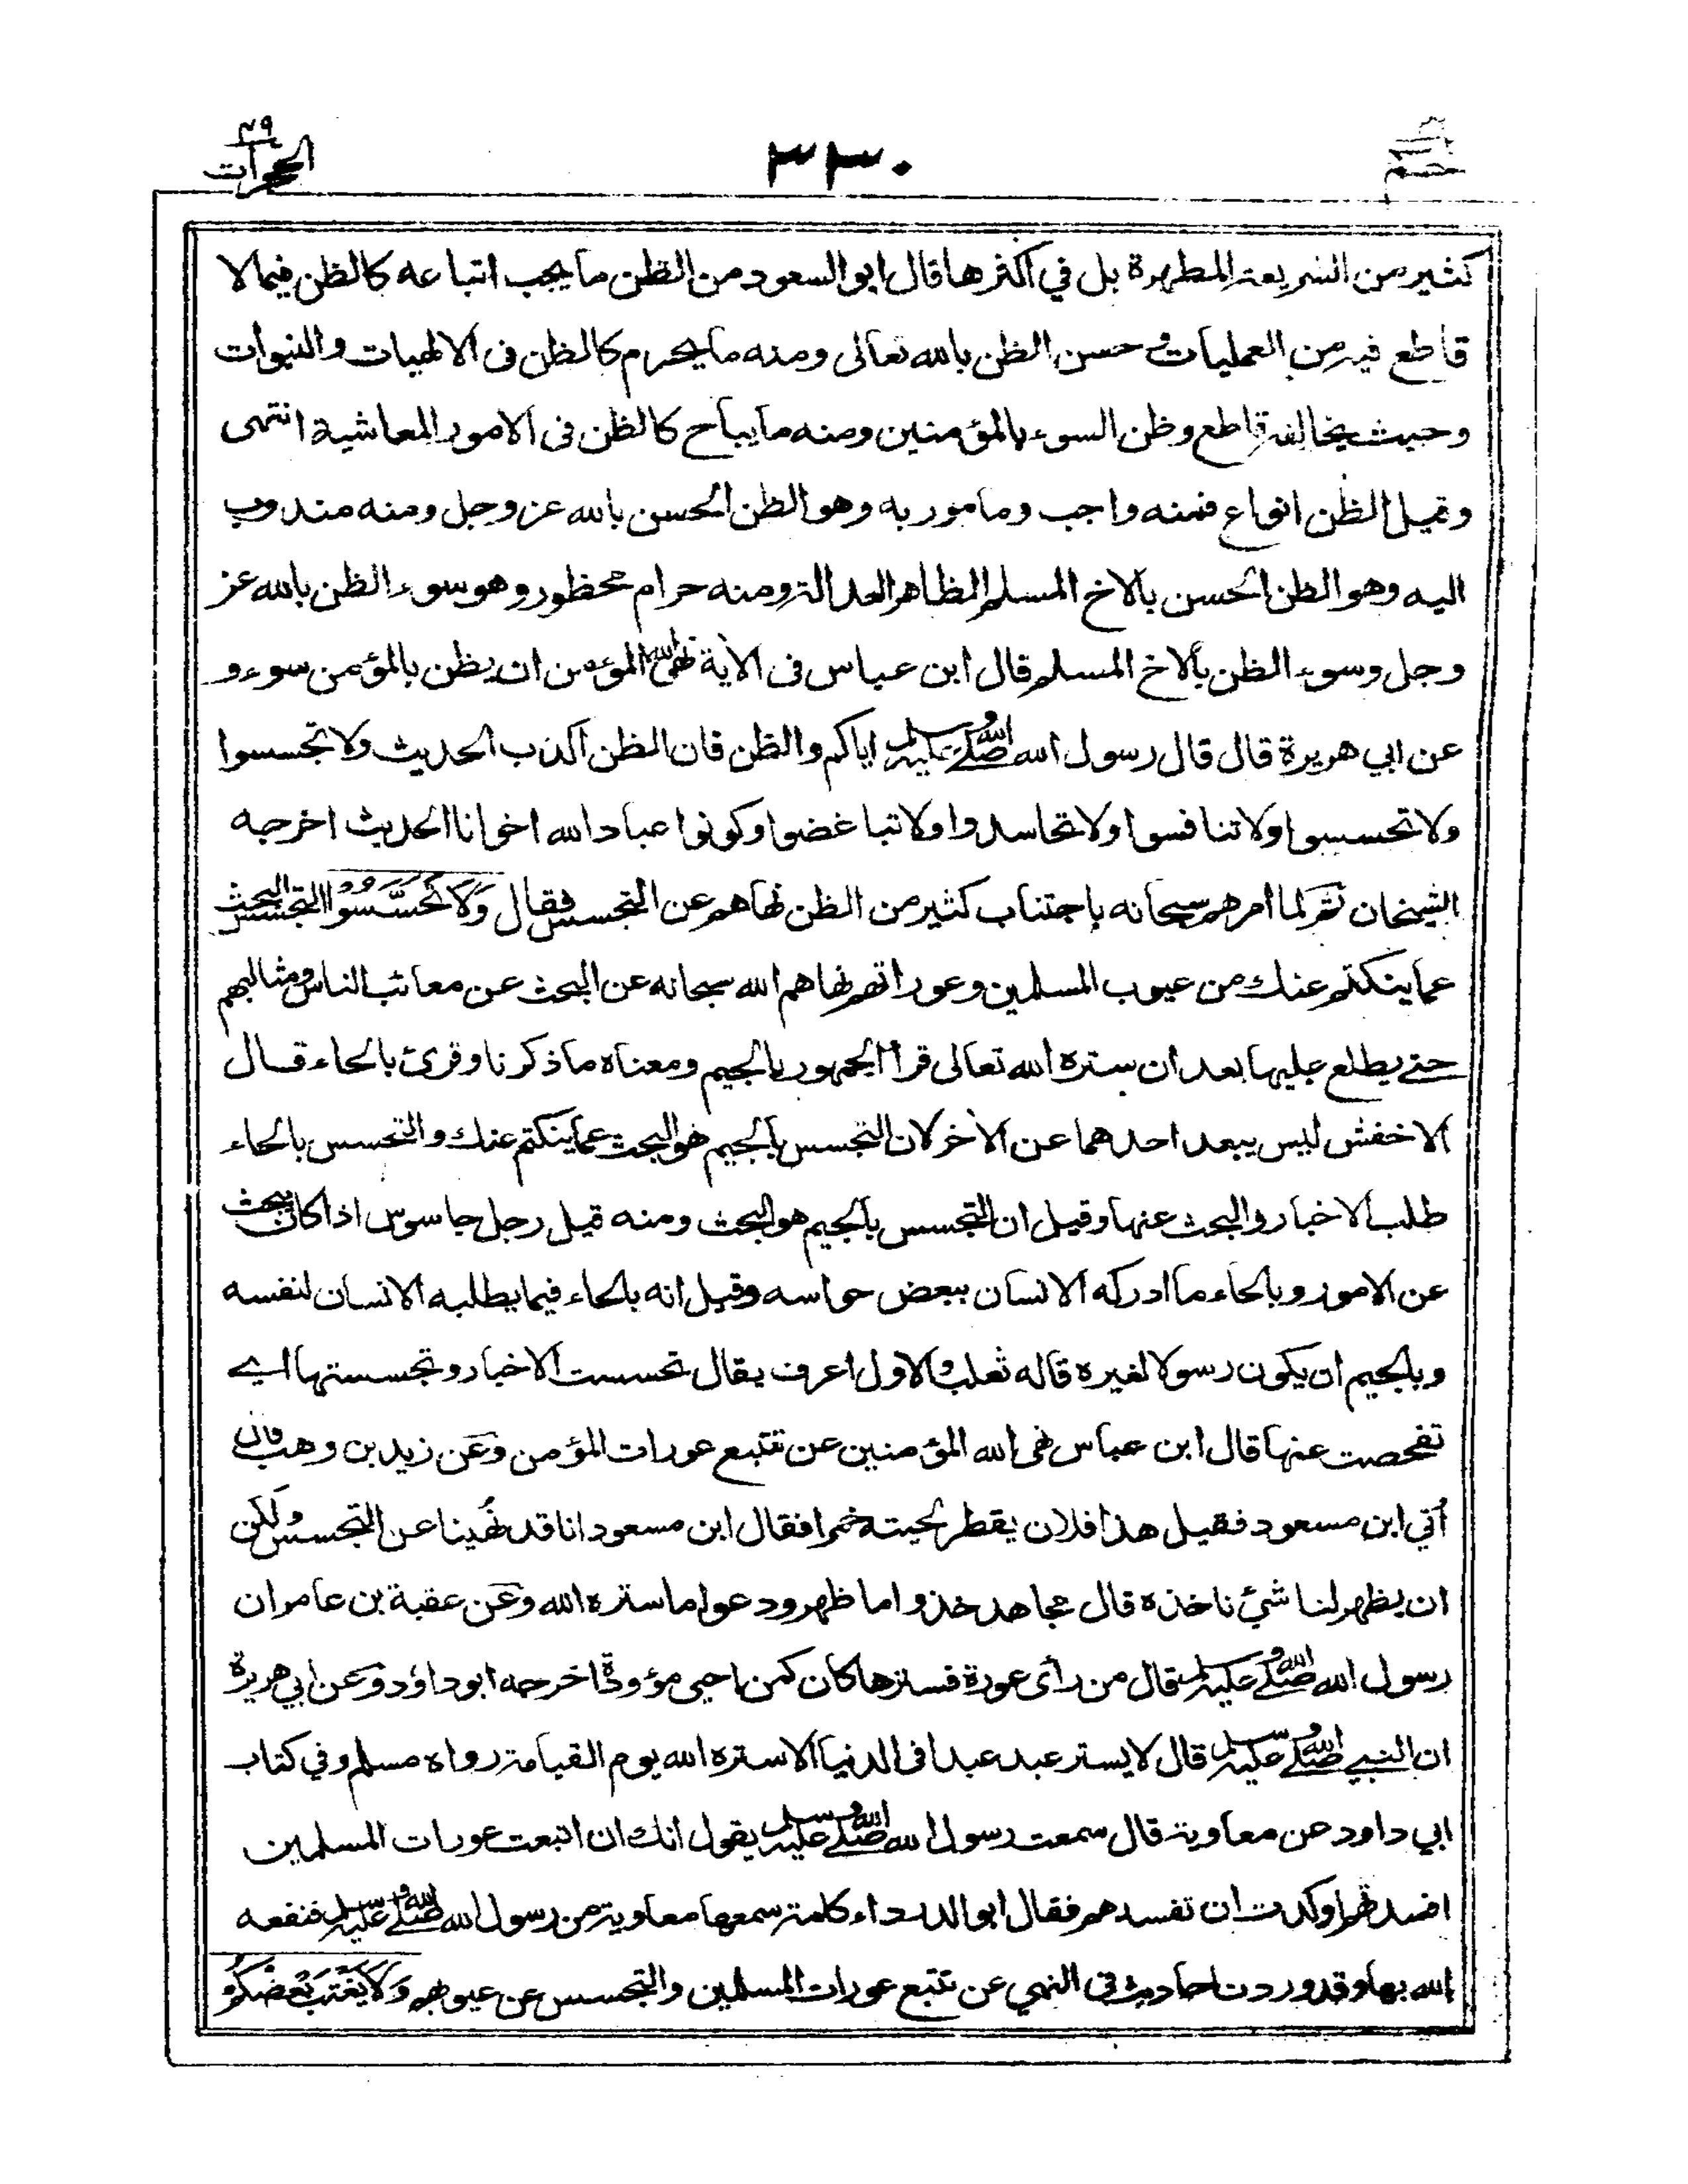 حٰم
٣٣٠
٤٩
الحجرات
كثير من الشريعة المطهرة بل في أكثرها قال ابو السعود من الظن ما يجب اتباعه كالظن فيما لا
قاطع فيه من العمليات وحسن الظن بالله تعالى ومنه ما يحرم كالظن فى الالهيات والنبوات
وحيث يخالفه قاطع وظن السوء بالمؤمنين ومنه ما يباح كالظن فى الامور المعاشية انتهى
وقيل الظن انواع فمنه واجب ومامور به وهو الظن الحسن بالله عز وجل ومنه مندوب
اليه وهو الظن الحسن بالاخ المسلم الظاهر العدالة ومنه حرام محظور وهو سوء الظن بالله عز
وجل وسوء الظن بالاخ المسلم قال ابن عباس فى الاية نهى الله المؤمن ان يظن بالمؤمن سوء و
عن ابي هريرة قال قال رسول الله صلى الله عليه وسلم اياكم والظن فان الظن اكذب الحديث ولا تجسسوا
ولا تحسسوا ولا تنافسوا ولا تحاسدوا ولا تباغضوا وكونوا عباد الله اخوانا الحديث اخرجه
الشيخان ثم لما امرهم سبحانه باجتناب كثير من الظن نهاهم عن التجسس فقال وَلَا تَجَسَّسُوْا التجسس البحث
عما ينكتم عنك من عيوب المسلمين وعوراتهم نهاهم الله سبحانه عن البحث عن معائب الناس ومثالبهم
حتى يطلع عليها بعد ان ستره الله تعالى قرأ الجمهور بالجيم ومعناه ما ذكرنا وقرئ بالحاء قال
الاخفش ليس يبعد احدهما عن الاخر لان التجسس بالجيم هو البحث عما ينكتم عنك والتحسس بالحاء
طلب الاخبار والبحث عنها وقيل ان التجسس بالجيم هو البحث ومنه قيل رجل جاسوس اذا كان يبحث
عن الامور وبالحاء ما ادركه الانسان ببعض حواسه وقيل انه بالحاء فيما يطلبه الانسان لنفسه
وبالجيم ان يكون رسولا لغيره قاله ثعلب والاول اعرف يقال تحسست الاخبار وتجسستها اي
تفحصت عنها قال ابن عباس نهى الله المؤمنين عن تتبع عورات المؤمن وعن زيد بن وهب قال
أتي ابن مسعود فقيل هذا فلان يقطر لحيته خمرا فقال ابن مسعود انا قد نُهينا عن التجسس ولكن
ان يظهر لنا شئ ناخذه قال مجاهد خذوا ما ظهر ودعوا ما ستره الله وعن عقبة بن عامر ان
رسول الله صلى الله عليه وسلم قال من رأى عورة فسترها كان كمن احيى مؤودة اخرجه ابو داؤد وعن ابي هريرة
ان النبي صلى الله عليه وسلم قال لا يستر عبد عبدا فى الدنيا الا ستره الله يوم القيامة رواه مسلم وفي كتاب
ابي داود عن معاوية قال سمعت رسول الله صلى الله عليه وسلم يقول انك ان اتبعت عورات المسلمين
افسدتهم او كدت ان تفسدهم فقال ابو الدرداء كلمة سمعها معاوية من رسول الله صلى الله عليه وسلم فنفعه
الله بها وقد وردت احاديث في النهي عن تتبع عورات المسلمين والتجسس عن عيوبهم وَلَا يَغْتَبْ بَعْضُكُمْ